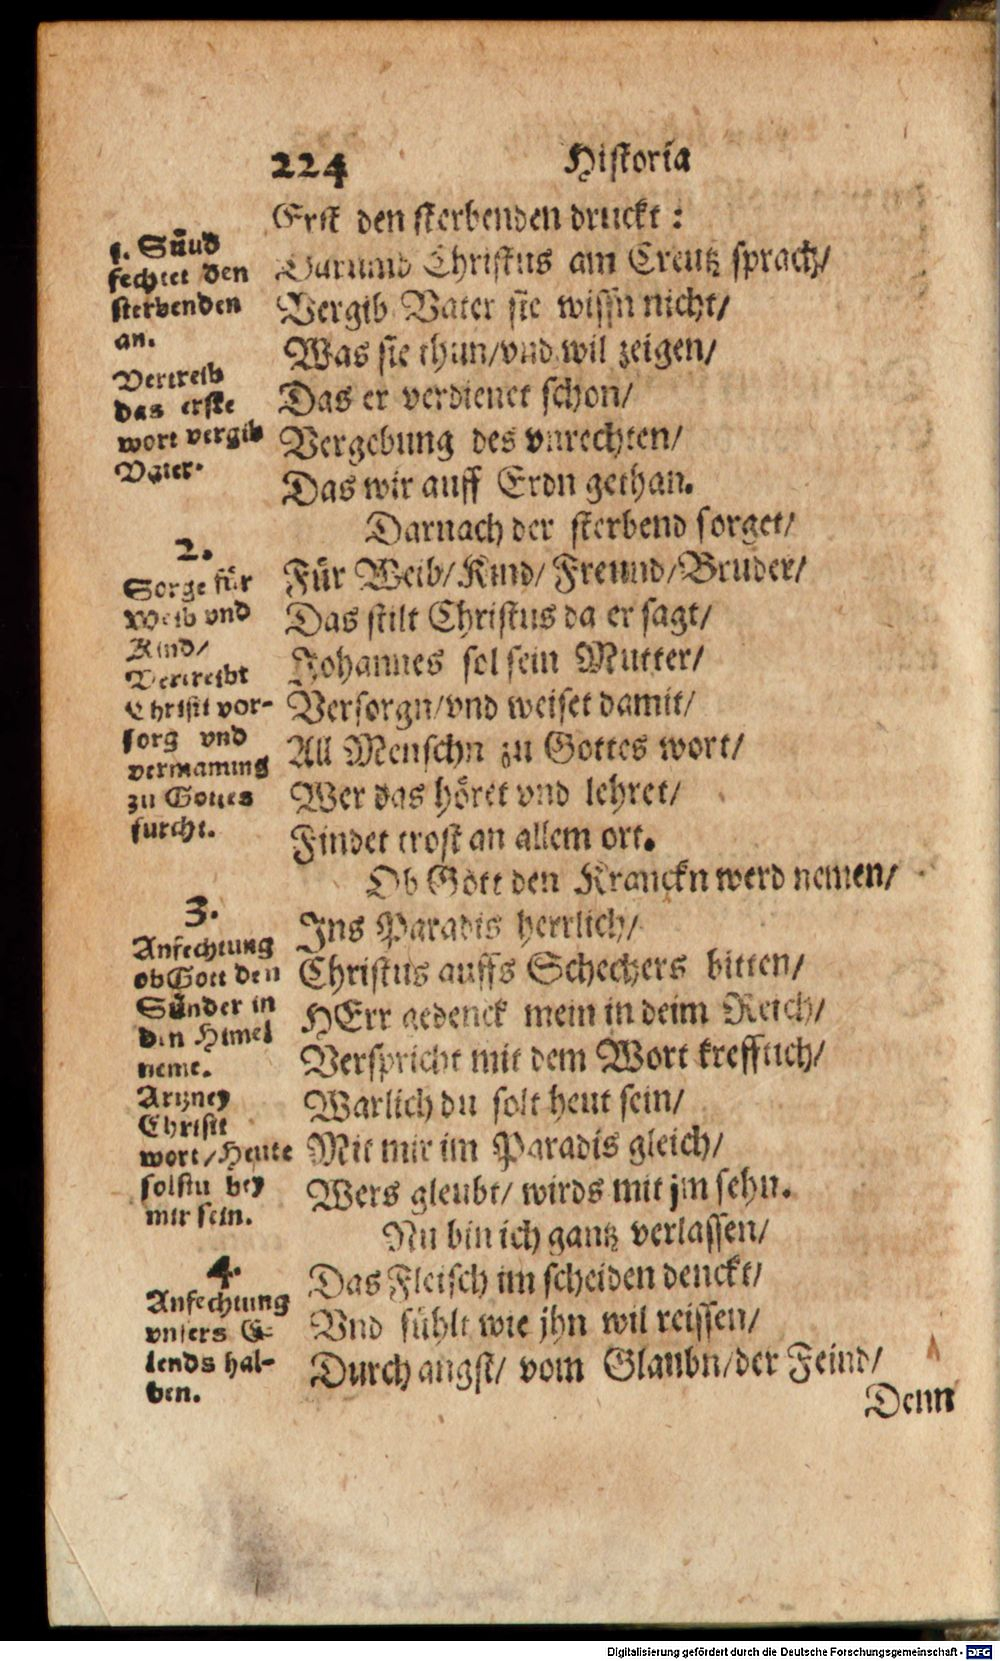 224 Historia
Erst den sterbenden druckt:
Darumb Christus am Creutz sprach/
Vergib Vater sie wissn nicht/
Was sie thun/vnd wil zeigen/
Das er verdienet schon/
Vergebung des vnrechten/
Das wir auff Erdn gethan.
Darnach der sterbend sorget/
Für Weib/Kind/Freund/Bruder/
Das stilt Christus da er sagt/
Johannes sol sein Mutter/
Versorgn/vnd weiset damit/
All Menschn zu Gottes wort/
Wer das höret vnd lehret/
Findet trost an allem ort.
Ob Gott den Kranckn werd nemen/
Ins Paradis herrlich/
Christus auffs Schechers bitten/
HErr gedenck mein in deim Reich/
Verspricht mit dem Wort krefftich/
Warlich du solt heut sein/
Mit mir im Paradis gleich/
Wers gleubt/ wirds mit jm sehn.
Nu bin ich gantz verlassen/
Das Fleisch im scheiden denckt/
Vnd fühlt wie jhn wil reissen/
Durch angst/ vom Glaubn/der Feind/
Denn
1. Sünd
fechtet den
sterbenden
an.
Vertreib
das erste
wort vergib
Vater.
2.
Sorge für
Weib vnd
Kind/
Vertreibt
Christi vor-
sorg vnd
vermanung
zu Gottes
furcht.
3.
Anfechtung
ob Gott den
Sünder in
den Himel
neme.
Artzney
Christi
wort/Heute
solstu bey
mir sein.
4.
Anfechtung
vnsers E-
lends hal-
ben.
Digitalisierung gefördert durch die Deutsche Forschungsgemeinschaft - DFG